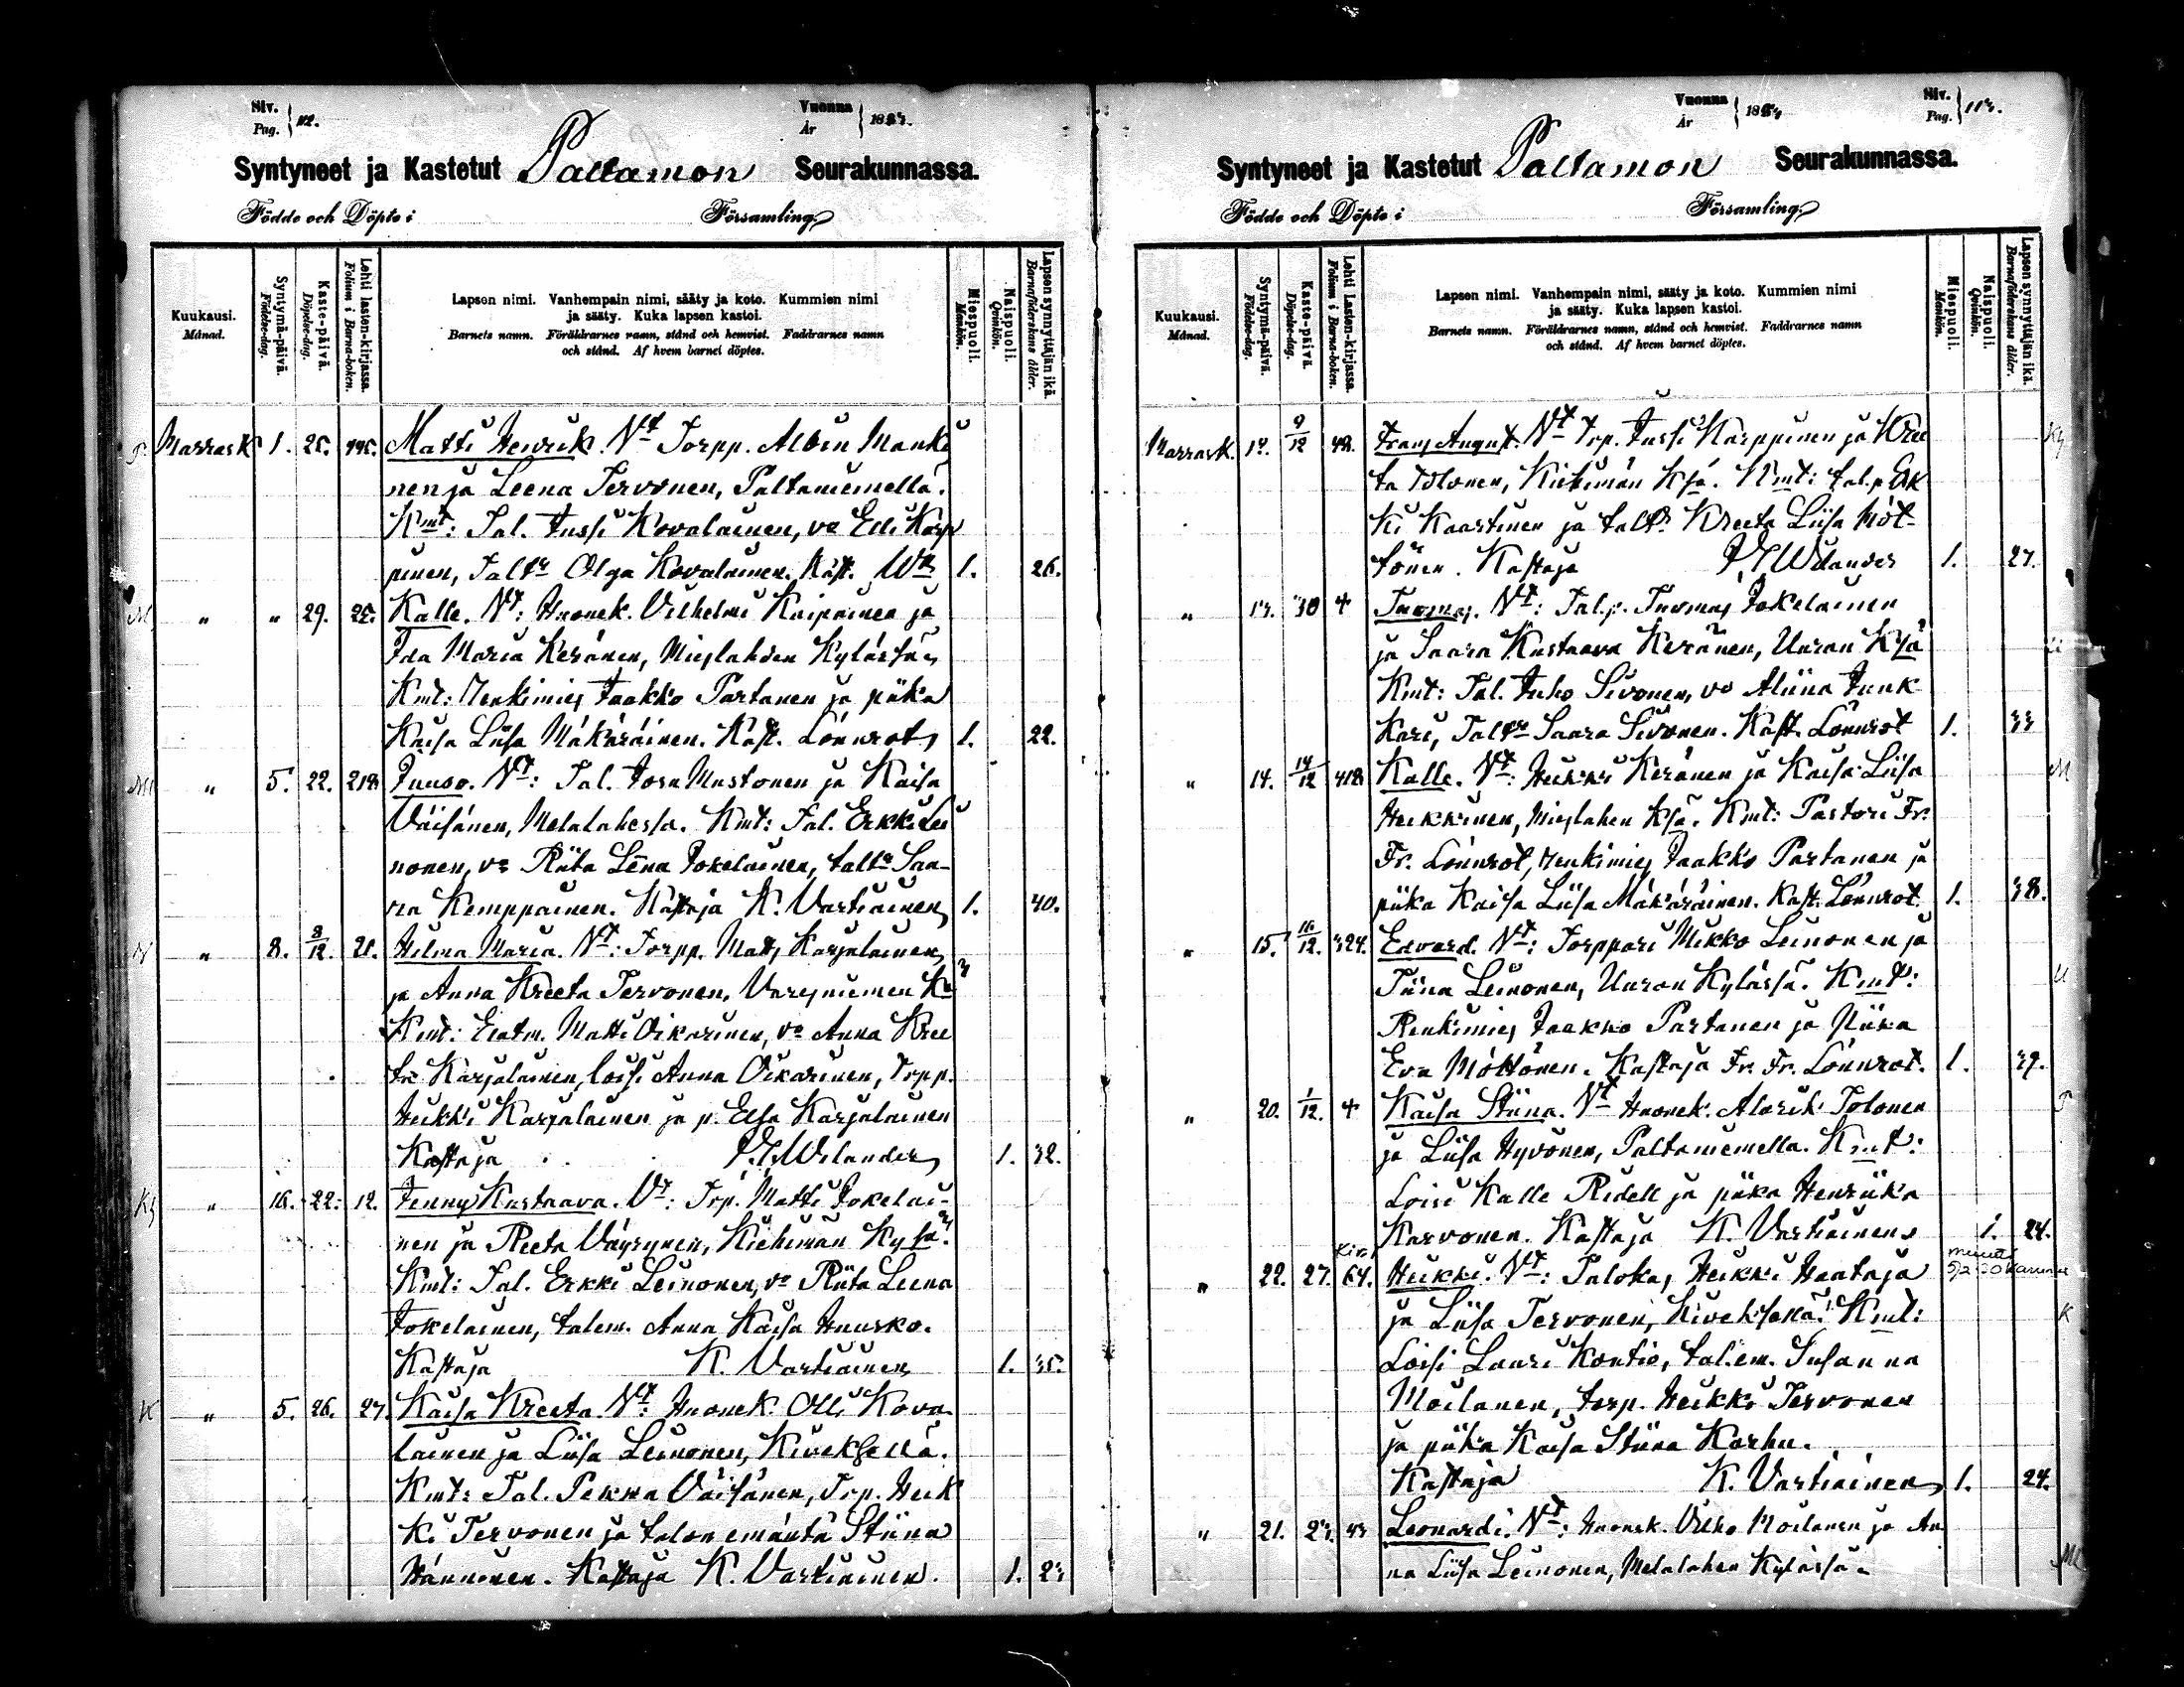 Siv.
Pag. 112.
Vuonna
År 188
Syntyneet ja Kastetut Paltamon Seurakunnassa.
Födde och Döpte i Församling
Kuukausi.
Månad.
Syntymä-päivä.
Födelse-dag.
Kaste-päivä.
Döpelse-dag.
Lehti lasten-kirjassa.
Folium i Barna-boken.
Lapsen nimi. Vanhempain nimi, sääty ja koto. Kummien nimi
ja sääty. Kuka lapsen kastoi.
Barnets namn. Föräldrarnes namn, stånd och hemvist. Faddrarnes namn
och stånd. Af hvem barnet döptes.
Miespuoli.
Mankön.
Naispuoli.
Qvinkön.
Lapsen synnyttäjän ikä.
Barnaföderskans ålder.
P Marrask 1. 25. Matti Henrik. Vt Torpp. Albin Manki
nen ja Leena Tervonen, Paltaniemellä.
Kmt: Tal. Jussi Kovalainen, vo Edi Karp
pinen, Taltr Olga Kovalainen. Kast. Wr 1. 26.
M " " 29. 25. Kalle. Vt: Huonek. Vilhelmi Kaipainen ja
Ida Maria Keränen, Mieslahden Kylässä
Kmt: Renkimies Jaakko Partanen ja piika
Kaisa Liisa Mäkäräinen. Kast. Lönnrot 1. 22.
Ml " 5. 22. 218 Juuso. Vt: Tal. Josu Mustonen ja Kaisa
Väisänen, Melalahessa. Kmt: Tal. Erkki Lei
nonen, vo Riita Lena Jokelainen, taltr Saa-
ra Kemppainen. Kastaja K. Vartiainen 1. 40.
V " 8. 8/12. 21. Hilma Maria. Vt: Torpp. Mats Karjalainen
ja Anna Kreeta Tervonen, Varisniemen K
Kmt: Matti Oikarinen, vo Anna Kree
ta Karjalainen, loisi Anna Oikarinen, Trpp.
Heikki Karjalainen ja p. Elsa Karjalainen
Kastaja Welander 1. 32.
Kh " 16. 22. 12. Jenny Kustaava. Vt: Trp. Matti Jokelai-
nen ja Reeta Väyrynen, Kiehimän Kylä.
Kmt: Tal. Erkki Leinonen, vo Riita Leena
Jokelainen, talem. Anna Kaisa Huusko.
Kastaja K. Vartiainen 1. 35.
K " 5. 26. 27. Kaisa Kreeta. Vt: Huonek. Olli Kova
lainen ja Liisa Leinonen, Kiveksellä.
Kmt: Tal. Pekka Väisänen, Trp. Heik
ki Tervonen ja talon emäntä Stiina
Hänninen. Kastaja K. Vartiainen. 1. 23
Vuonna
År 188
Siv.
Pag. 113.
Syntyneet ja Kastetut Paltamon Seurakunnassa.
Födde och Döpte i Församling
Kuukausi.
Månad.
Syntymä-päivä.
Födelse-dag.
Kaste-päivä.
Döpelse-dag.
Lehti Lasten-kirjassa.
Folium i Barna-boken.
Lapsen nimi. Vanhempain nimi, sääty ja koto. Kummien nimi
ja sääty. Kuka lapsen kastoi.
Barnets namn. Föräldrarnes namn, stånd och hemvist. Faddrarnes namn
och stånd. Af hvem barnet döptes.
Miespuoli.
Mankön.
Naispuoli.
Qvinkön.
Lapsen synnyttäjän ikä.
Barnaföderskans ålder.
Marrask. 9/12 48. Frans August. Vt Trp. Jussi Karppinen ja Kree Kh
ta Tolonen, Kiehimän Kyä. Kmt: tal.p. Erk
ki Kaartinen ja taltr Kreeta Liisa Möt-
tönen. Kastaja Welander 1. 27.
" 13. 30 4 Tuomas. Vt: Tal.p. Tuomas Jokelainen
ja Saara Kustaava Keränen, Uuran Kylä
Kmt: Tal. Juho Sivonen, vo Aliina Junk
kari, Taltr Saara Sivonen. Kast. Lönnrot 1. 33
" 14. 14/12 418 Kalle. Vt: Heikki Keränen ja Kaisa Liisa M
Heikkinen, Mieslahen Kyä. Kmt: Pastori Fr.
Fr. Lönnrot, renkimies Jaakko Partanen ja
piika Kaisa Liisa Mäkäräinen. Kast. Lönnrot. 1. 38.
" 15. 16/12. 324. Edvard. Vt: Torppari Mikko Leinonen ja
Tiina Leinonen, Uuran Kylässä. Kmt: U
Renkimies Jaakko Partanen ja Piika
Eva Möttönen. Kastaja Fr. Fr. Lönnrot. 1. 39.
" 20. 1/12. 4 Kaisa Stiina. Vt Huonek. Alarik Tolonen P
ja Liisa Hyvönen, Paltaniemella. Kmt:
Loisi Kalle Ridell ja piika Henriika
Karvonen. Kastaja K. Vartiainen 1. 24.
" 22. 27. Kir. 64. Heikki. Vt: Taloks, Heikki Haataja
ja Liisa Tervonen, Kiveksellä. Kmt: K
Loisi Lauri Kontio, tal.em. Susanna
Moilanen, torp. Heikki Tervonen
ja piika Kaisa Stiina Korhu.
Kastaja K. Vartiainen 1. 24.
" 21. 23. 43 Leonardi. Vt: Huonek. Ville Moilanen ja An
na Liisa Leinonen, Melalahen Kylässä. Ml